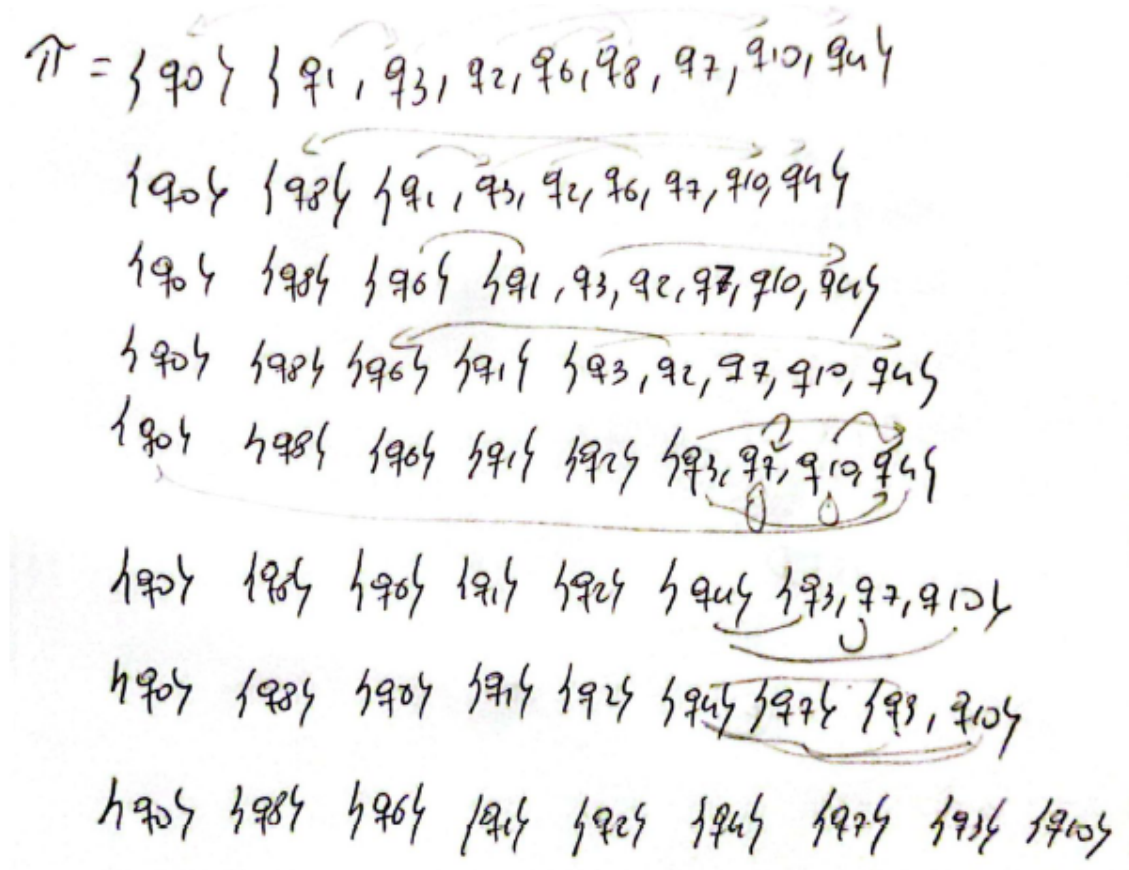 π = {q0} {q1, q3, q2, q6, q8, q7, q10, q4}
{q0} {q8} {q1, q3, q2, q6, q7, q10, q4}
{q0} {q8} {q6} {q1, q3, q2, q7, q10, q4}
{q0} {q8} {q6} {q1} {q3, q2, q7, q10, q4}
{q0} {q8} {q6} {q1} {q2} {q3, q7, q10, q4}
{q0} {q8} {q6} {q1} {q2} {q4} {q3, q7, q10}
{q0} {q8} {q6} {q1} {q2} {q4} {q7} {q3, q10}
{q0} {q8} {q6} {q1} {q2} {q4} {q7} {q3} {q10}